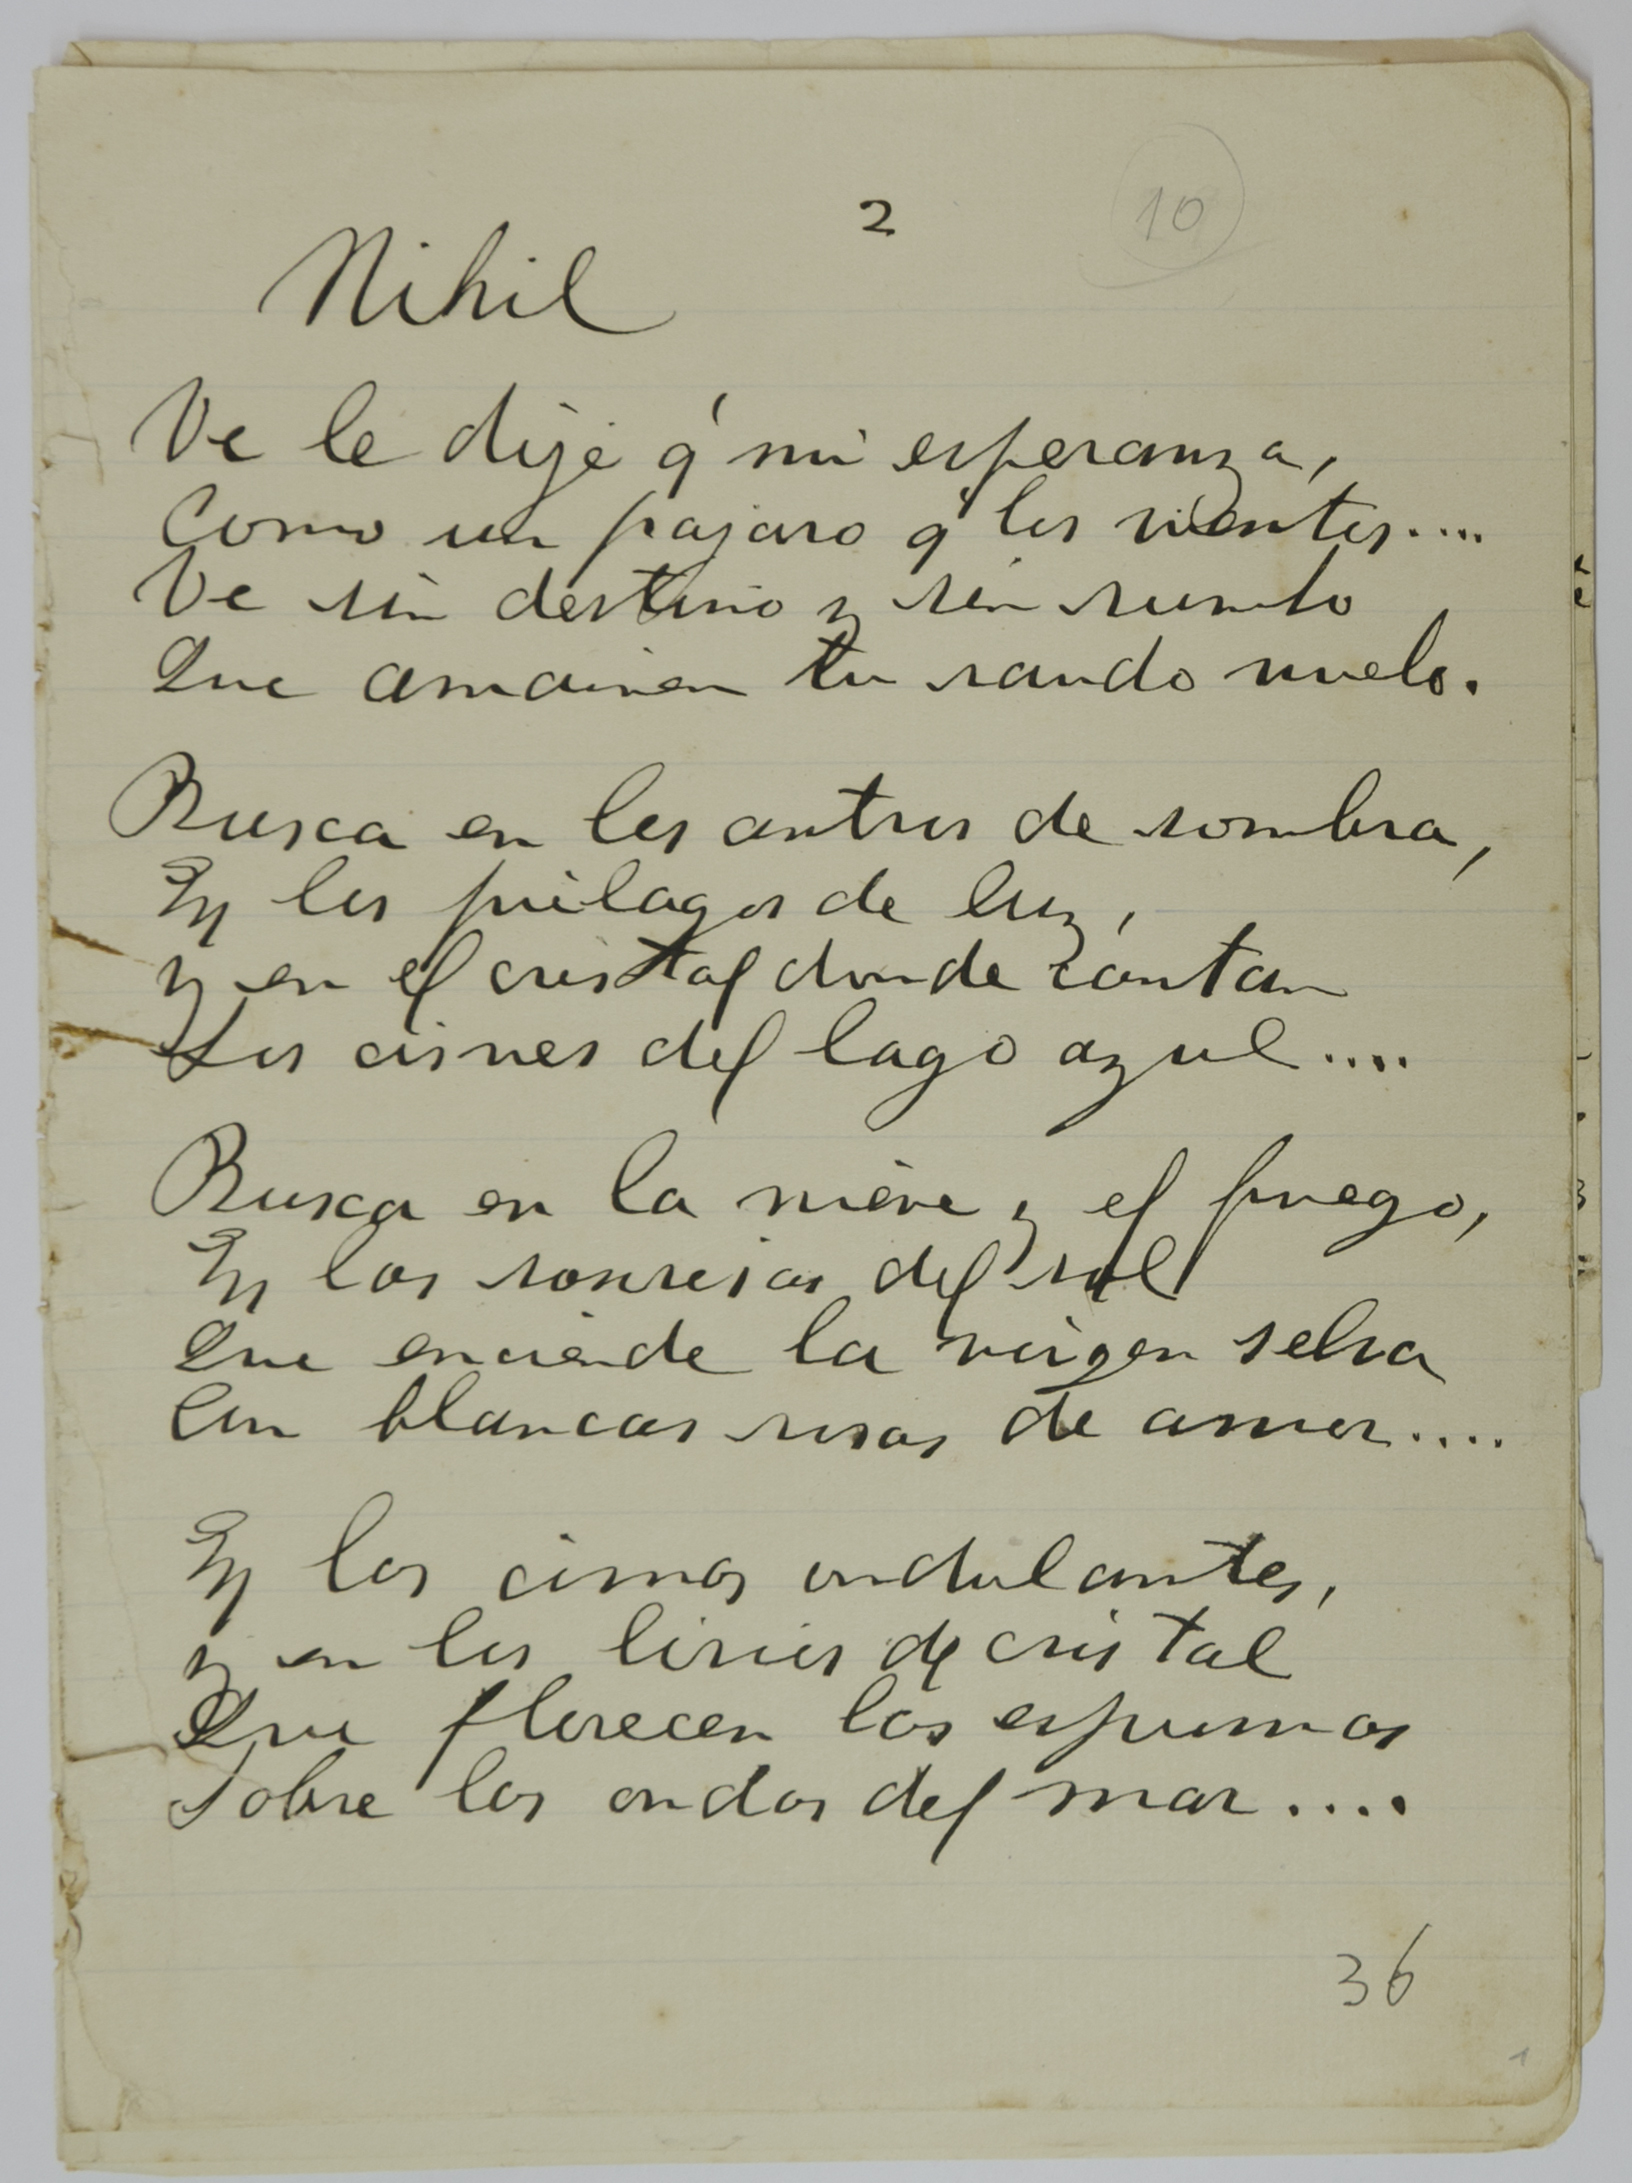 2
10
Nihil
Ve le dije á mi esperanza,
Como un pajaro á los vientos....
Ve sin destino y sin rumbo
Que amainen tu raudo vuelo.
Busca en los antros de sombra,
En los piélagos de luz,
y en el cristal donde cantan
Los cisnes del lago azul....
Busca en la nieve y el fuego,
En las sonrisas del sol
Que enciende la virgen selva
Con blancas rosas de amor....
En las cimas ondulantes,
y en los lirios de cristal
Que florecen las espumas
Sobre las ondas del mar....
36
1